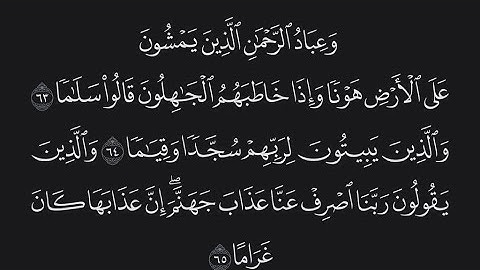 وَعِبَادُ ٱلرَّحْمَٰنِ ٱلَّذِينَ يَمْشُونَ
عَلَى ٱلْأَرْضِ هَوْنًا وَإِذَا خَاطَبَهُمُ ٱلْجَٰهِلُونَ قَالُوا۟ سَلَٰمًا ٦٣
وَٱلَّذِينَ يَبِيتُونَ لِرَبِّهِمْ سُجَّدًا وَقِيَٰمًا ٦٤ وَٱلَّذِينَ
يَقُولُونَ رَبَّنَا ٱصْرِفْ عَنَّا عَذَابَ جَهَنَّمَ ۖ إِنَّ عَذَابَهَا كَانَ
غَرَامًا ٦٥